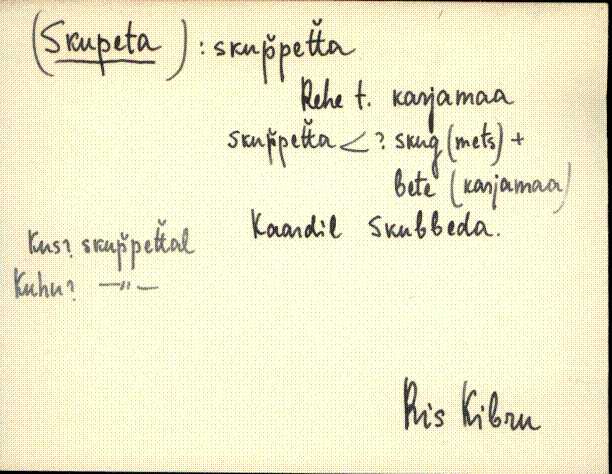 (Skupeta) : skup̆pet̆ta
Rehe t. karjamaa
skup̆pet̆ta < ? skug (mets) +
bete (karjamaa)
Kaardil Skubbeda.
Kus? skup̆pet̆tal
Kuhu? —"—
Ris Kibru